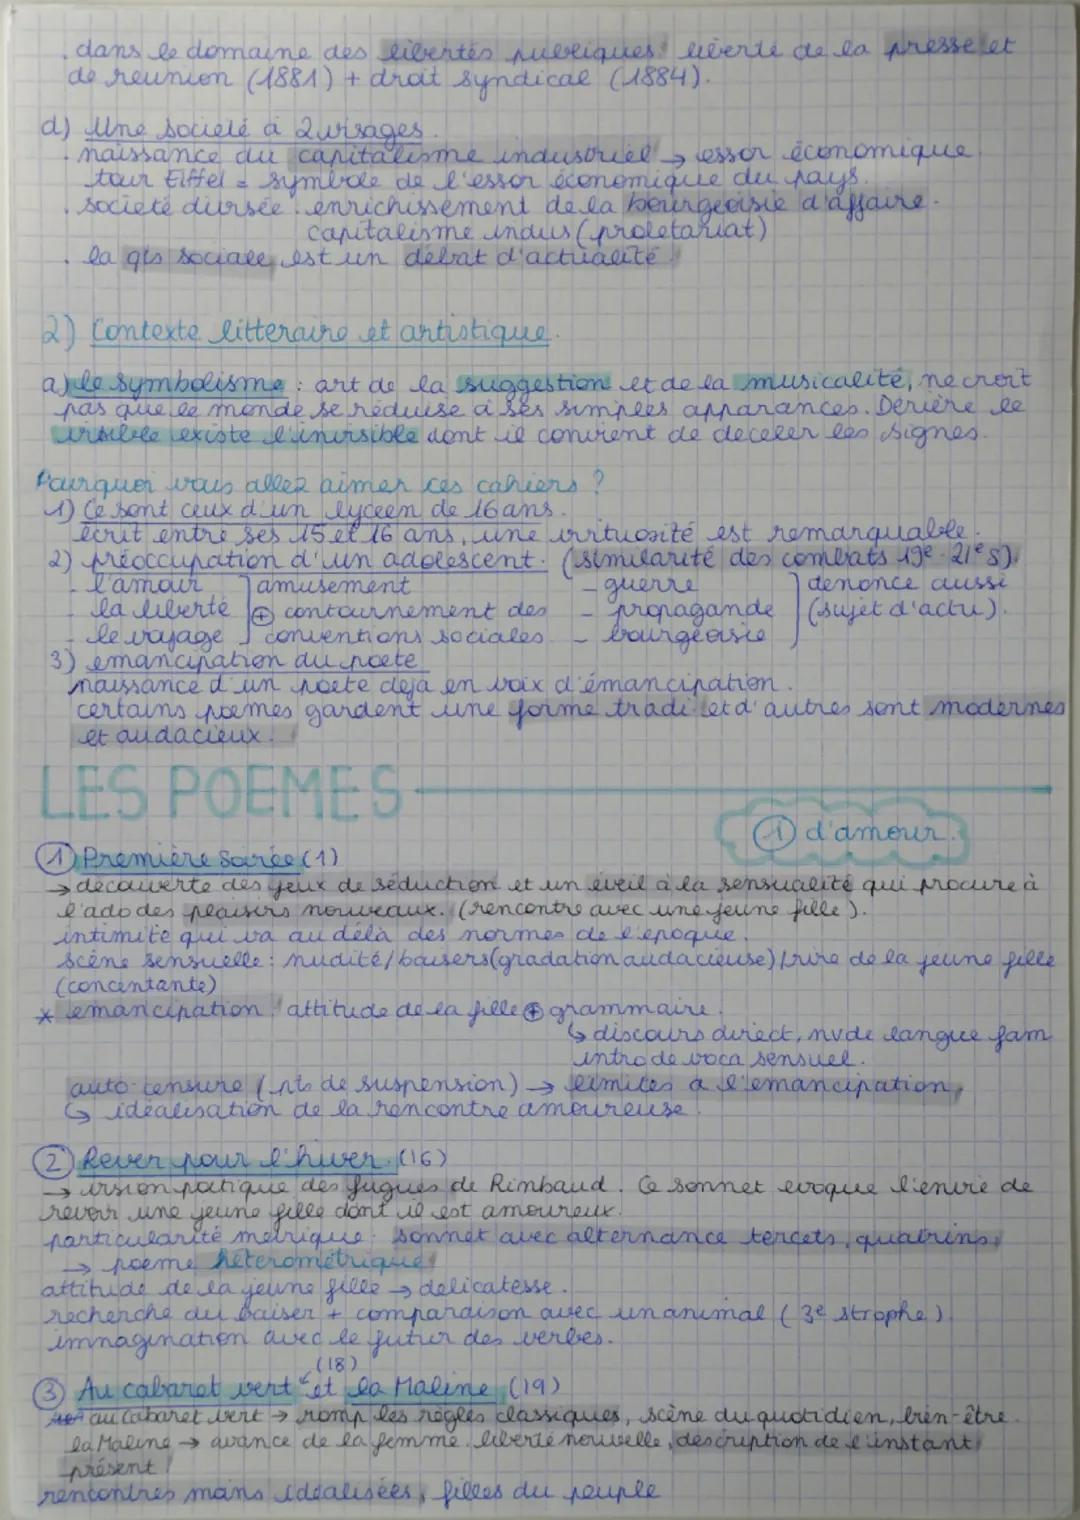 . dans le domaine des libertés publiques : liberté de la presse et
de réunion (1881) + droit syndical (1884).
d) Une société à 2 visages.
. naissance du capitalisme industriel → essor économique.
tour Eiffel = symbole de l'essor économique du pays.
. société divisée : enrichissement de la bourgeoisie d'affaire.
capitalisme indus (prolétariat)
. la qts sociale est un débat d'actualité.
2) Contexte litteraire et artistique.
a) le symbolisme : art de la suggestion et de la musicalité, ne croit
pas que le monde se réduise à ses simples apparances. Derière le
visible existe l'invisible dont il convient de deceler les signes.
Pourquoi vous allez aimer ces cahiers ?
1) Ce sont ceux d'un lyceen de 16 ans.
écrit entre ses 15 et 16 ans, une virtuosité est remarquable.
2) préoccupation d'un adolescent. (similarité des combats 19e - 21e s).
- l'amour ] amusement - guerre ] dénonce aussi
- la liberté ⊕ contournement des - propagande (sujet d'actu).
- le voyage conventions sociales. - bourgeoisie
3) emancipation du poete
naissance d'un poete déjà en voix d'émancipation.
certains poemes gardent une forme tradi et d'autres sont modernes
et audacieux.
LES POEMES
① d'amour.
① Première Soirée (1)
→ découverte des jeux de séduction et un éveil à la sensualité qui procure à
l'ado des plaisirs nouveaux. (rencontre avec une jeune fille).
intimité qui va au délà des normes de l'époque.
scène sensuelle : nudité / baisers (gradation audacieuse) / rire de la jeune fille
(concentante)
* emancipation : attitude de la fille ⊕ grammaire.
↳ discours direct, nv de langue fam
intro de voca sensuel.
auto-censure (pts de suspension) → limites a l'emancipation,
↳ idéalisation de la rencontre amoureuse.
② Rever pour l'hiver. (16)
→ vision poétique des fugues de Rimbaud. Ce sonnet evoque l'envie de
revoir une jeune fille dont il est amoureux.
particularité metrique : sonnet avec alternance tercets, quatrins,
→ poeme hétérométrique
attitude de la jeune fille → delicatesse.
recherche du baiser + comparaison avec un animal (3e strophe).
immagination avec le futur des verbes.
(18)
③ Au cabaret vert et la Maline (19)
au Cabaret vert → romp les règles classiques, scène du quotidien, bien-être.
la Maline → avance de la femme. liberté nouvelle, description de l'instant
présent
rencontres moins idéalisées, filles du peuple